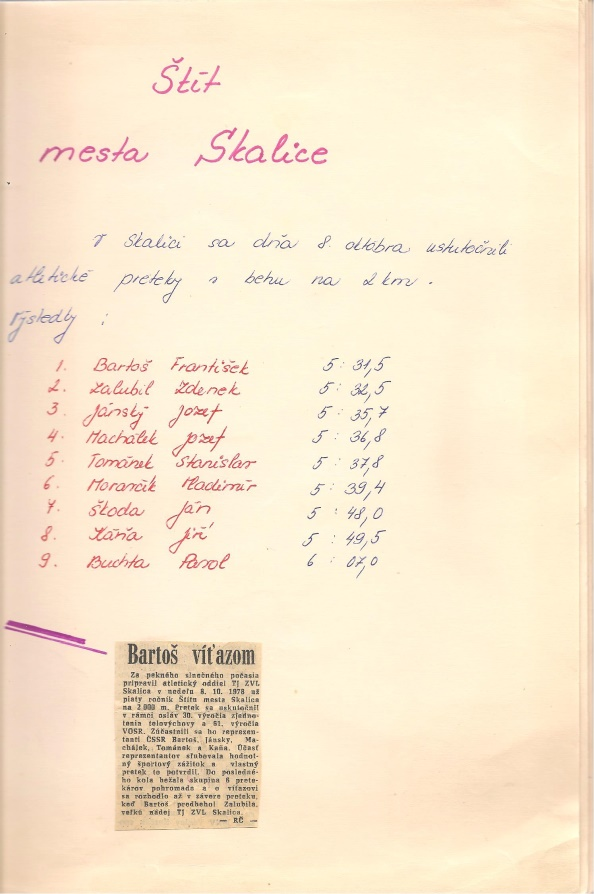 Štít
mesta Skalice
V Skalici sa dňa 8. októbra uskutočnili
atletické preteky v behu na 2 km.
Výsledky :
1. Bartoš František 5 : 31,5
2. Zalubil Zdenek 5 : 32,5
3. Jánský Jozef 5 : 35,7
4. Machálek Jozef 5 : 36,8
5. Tománek Stanislav 5 : 37,8
6. Morančík Vladimír 5 : 39,4
7. Škoda Ján 5 : 48,0
8. Káňa Jiří 5 : 49,5
9. Buchta Pavol 6 : 07,0
Bartoš víťazom
Za pekného slnečného počasia
pripravil atletický oddiel TJ ZVL
Skalica v nedeľu 8. 10. 1978 už
piaty ročník Štítu mesta Skalica
na 2 000 m. Pretek sa uskutočnil
v rámci osláv 30. výročia zjedno-
tenia telovýchovy a 61. výročia
VOSR. Zúčastnili sa ho reprezen-
tanti ČSSR Bartoš, Jánsky, Ma-
chájek, Tománek a Kaňa. Účasť
reprezentantov sľubovala hodnot-
ný športový zážitok a vlastný
pretek to potvrdil. Do posledné-
ho kola bežala skupina 6 prete-
károv pohromade a o víťazovi
sa rozhodlo až v závere preteku,
keď Bartoš predbehol Zalubila,
veľkú nádej TJ ZVL Skalica.
— RČ —